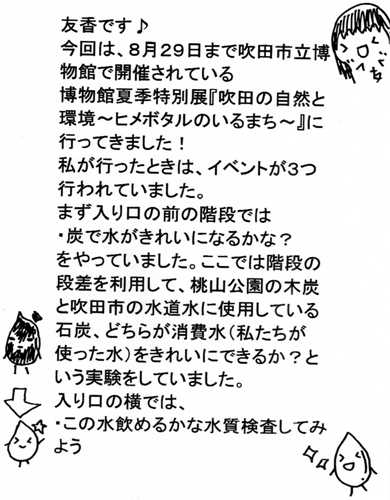 友香です♪
今回は、8月29日まで吹田市立博
物館で開催されている
博物館夏季特別展『吹田の自然と
環境～ヒメボタルのいるまち～』に
行ってきました！
私が行ったときは、イベントが３つ
行われていました。
まず入り口の前の階段では
・炭で水がきれいになるかな？
をやっていました。ここでは階段の
段差を利用して、桃山公園の木炭
と吹田市の水道水に使用している
石炭、どちらが消費水（私たちが
使った水）をきれいにできるか？と
いう実験をしていました。
入り口の横では、
・この水飲めるかな水質検査してみ
よう